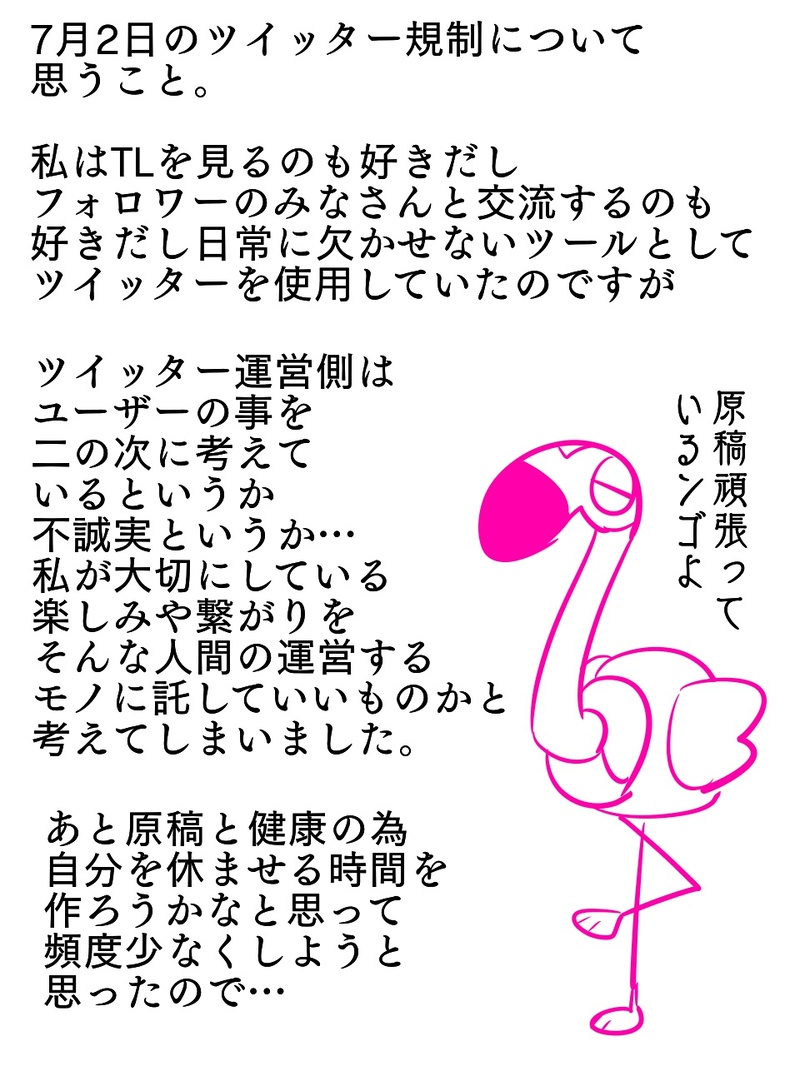 7月2日のツイッター規制について
思うこと。
私はTLを見るのも好きだし
フォロワーのみなさんと交流するのも
好きだし日常に欠かせないツールとして
ツイッターを使用していたのですが
ツイッター運営側は
ユーザーの事を
二の次に考えて
いるというか
不誠実というか…
私が大切にしている
楽しみや繋がりを
そんな人間の運営する
モノに託していいものかと
考えてしまいました。
原稿頑張って
いるンゴよ
あと原稿と健康の為
自分を休ませる時間を
作ろうかなと思って
頻度少なくしようと
思ったので…